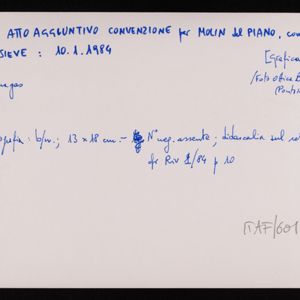 ATTO AGGIUNTIVO CONVENZIONE per MOLIN del PIANO, com
SIEVE : 10.1.1984
[Grafica
/Foto Ottica B
(Ponta
negas
b/n.; 13 x 18 cm. - N° neg. assente; didascalia sul
cfr Riv 1/84 p 10
ITAF/601